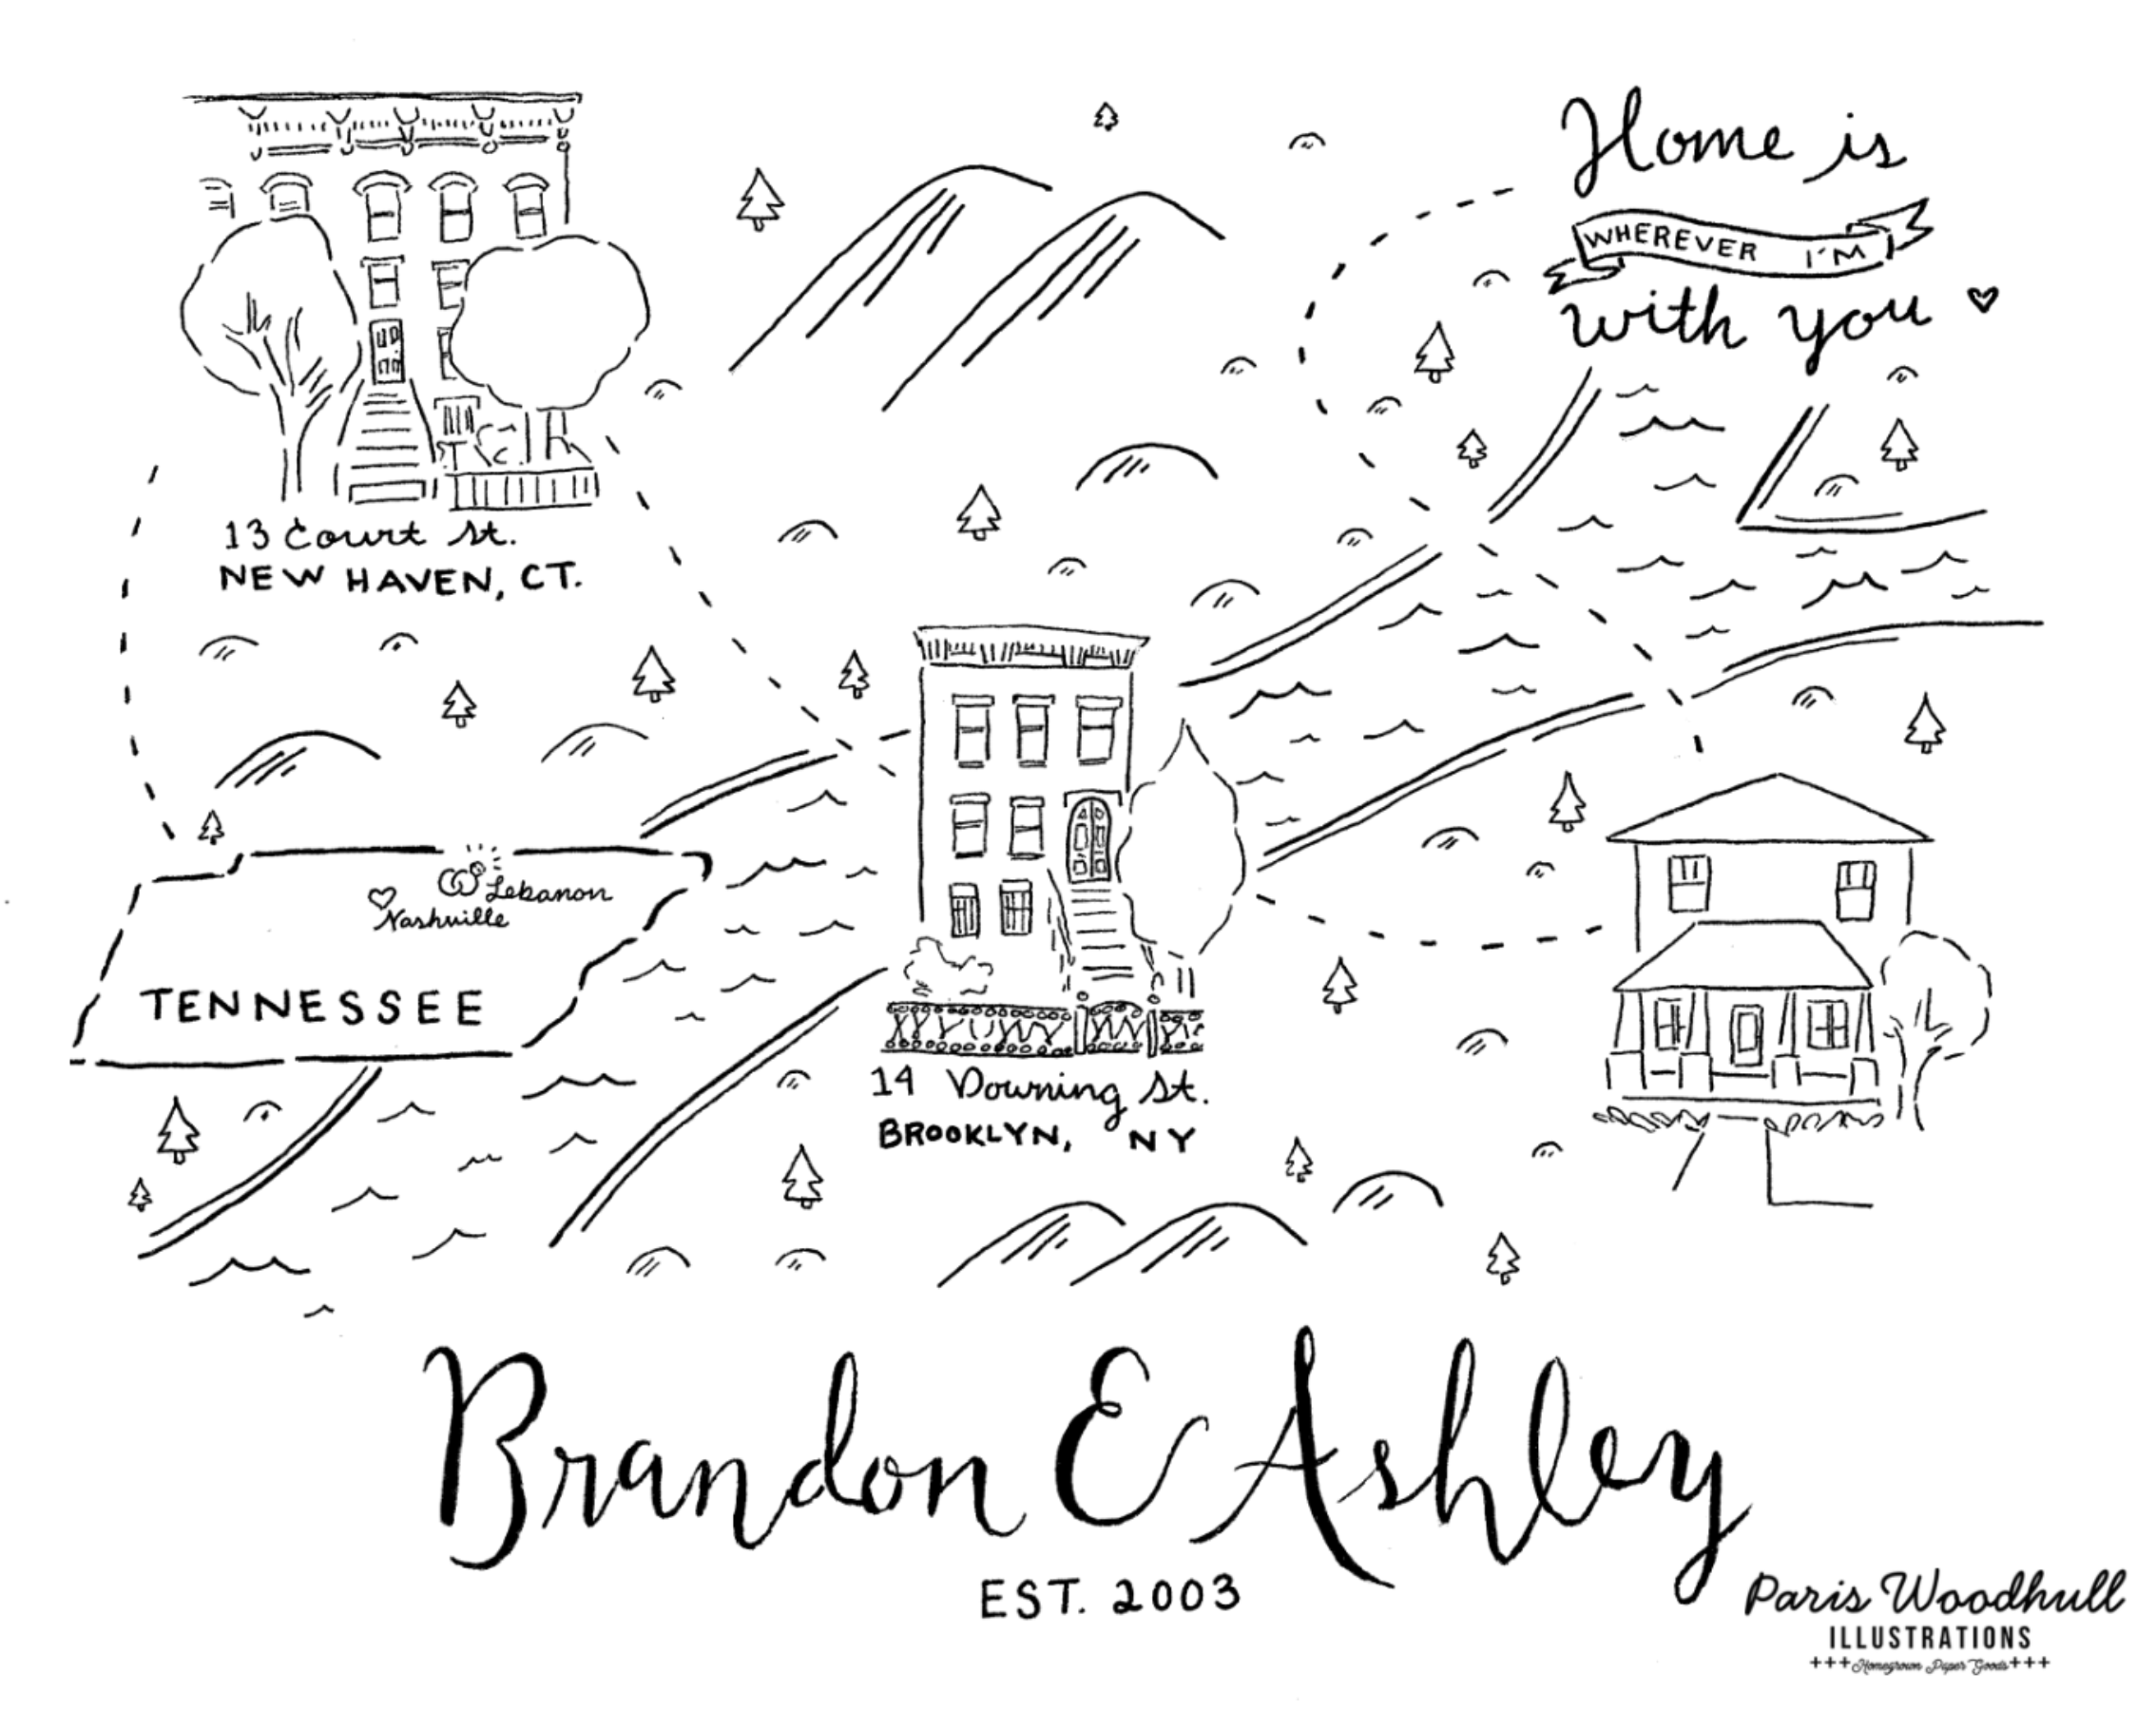 Home is
WHEREVER I'M
with you
13 Court St.
NEW HAVEN, CT.
Lebanon
Nashville
TENNESSEE
14 Downing St.
BROOKLYN, NY
Brandon & Ashley
EST. 2003
Paris Woodhull
ILLUSTRATIONS
+++Homegrown Paper Goods+++